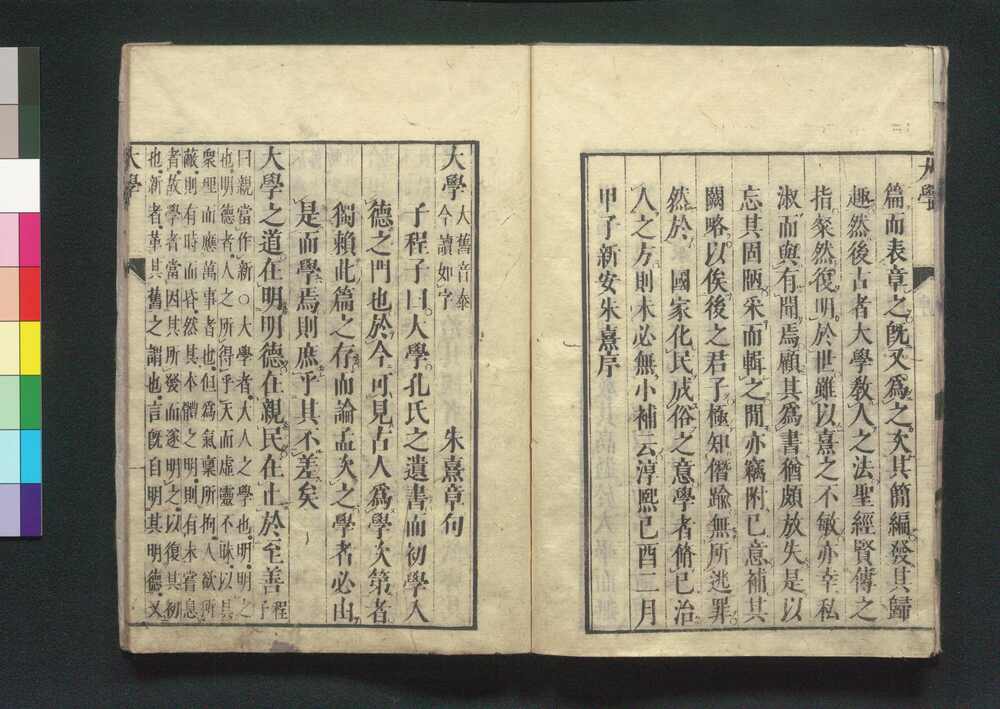 大學
篇而表章之旣又爲之次其簡編發其歸
趣然後古者大學敎人之法聖經賢傳之
指粲然復明於世雖以熹之不敏亦幸私
淑而與有聞焉顧其爲書猶頗放失是以
忘其固陋采而輯之閒亦竊附己意補其
闕略以俟後之君子極知僭踰無所逃罪
然於 國家化民成俗之意學者脩己治
人之方則未必無小補云淳熙己酉二月
甲子新安朱熹序
大學 大舊音泰
今讀如字
朱熹章句
子程子曰大學孔氏之遺書而初學入
德之門也於今可見古人爲學次第者
獨賴此篇之存而論孟次之學者必由
是而學焉則庶乎其不差矣
大學之道在明明德在親民在止於至善 程子
曰親當作新○大學者大人之學也明明之
也明德者人之所得乎天而虛靈不昧以具
衆理而應萬事者也但爲氣稟所拘人欲所
蔽則有時而昏然其本體之明則有未嘗息
者故學者當因其所發而遂明之以復其初
也新者革其舊之謂也言旣自明其明德又
大學